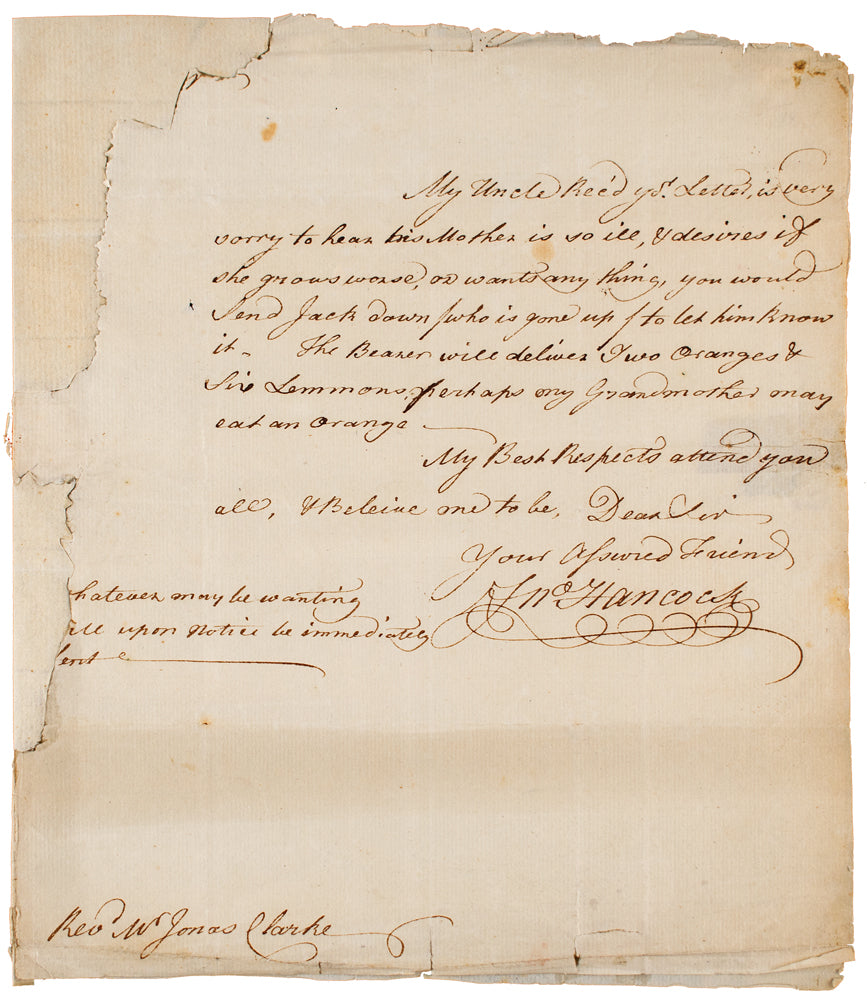 My Uncle Rec'd yor. Letter, is very
sorry to hear his Mother is so ill, & desires if
she grows worse, or wants any thing, you would
Send Jack down /who is gone up/ to let him know
it - The Bearer will deliver Two Oranges &
Six Lemmons, perhaps my Grandmother may
eat an Orange
My Best Respects attend you
all, & Beleive me to be, Dear Sir
Your Assured Friend
Jno. Hancock
hatever may be wanting
ill upon Notice be immediately
sent
Revd. Mr Jonas Clarke